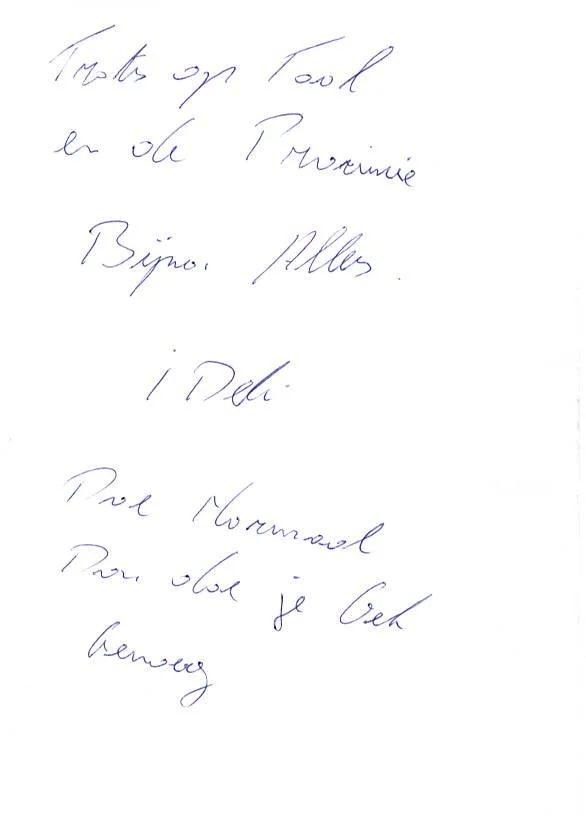 Trots op Taal
en de Provincie
Bijna Alles.
1 Deli
Doe Normaal
Dan doe je Gek
Genoeg